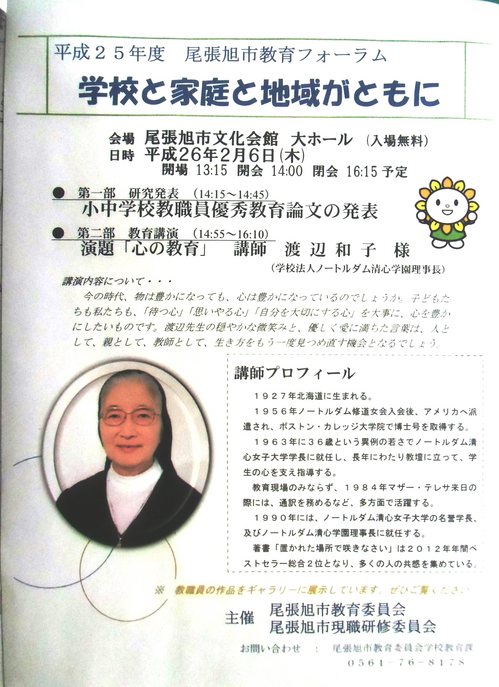 平成25年度 尾張旭市教育フォーラム
学校と家庭と地域がともに
会場 尾張旭市文化会館 大ホール (入場無料)
日時 平成26年2月6日(木)
開場 13:15 開会 14:00 閉会 16:15予定
● 第一部 研究発表 (14:15~14:45)
小中学校教職員優秀教育論文の発表
● 第二部 教育講演 (14:55~16:10)
演題「心の教育」 講師 渡辺和子 様
(学校法人ノートルダム清心学園理事長)
講演内容について・・・
今の時代、物は豊かになっても、心は豊かになっているのでしょうか。子どもた
ちも私たちも、「待つ心」「思いやる心」「自分を大切にする心」を大事に、心を豊か
にしたいものです。渡辺先生の穏やかな微笑みと、優しく愛に満ちた言葉は、人と
して、親として、教師として、生き方をもう一度見つめ直す機会となるでしょう。
講師プロフィール
1927年北海道に生まれる。
1956年ノートルダム修道女会入会後、アメリカへ派
遣され、ボストン・カレッジ大学院で博士号を取得する。
1963年に36歳という異例の若さでノートルダム清
心女子大学学長に就任し、長年にわたり教壇に立って、学
生の心を支え指導する。
教育現場のみならず、1984年マザー・テレサ来日の
際には、通訳を務めるなど、多方面で活躍する。
1990年には、ノートルダム清心女子大学の名誉学長、
及びノートルダム清心学園理事長に就任する。
著書「置かれた場所で咲きなさい」は2012年年間ベ
ストセラー総合2位となり、多くの人の共感を集めている。
※ 教職員の作品をギャラリーに展示しています。ぜひご覧ください
主催 尾張旭市教育委員会
尾張旭市現職研修委員会
お問い合わせ : 尾張旭市教育委員会学校教育課
0561-76-8178